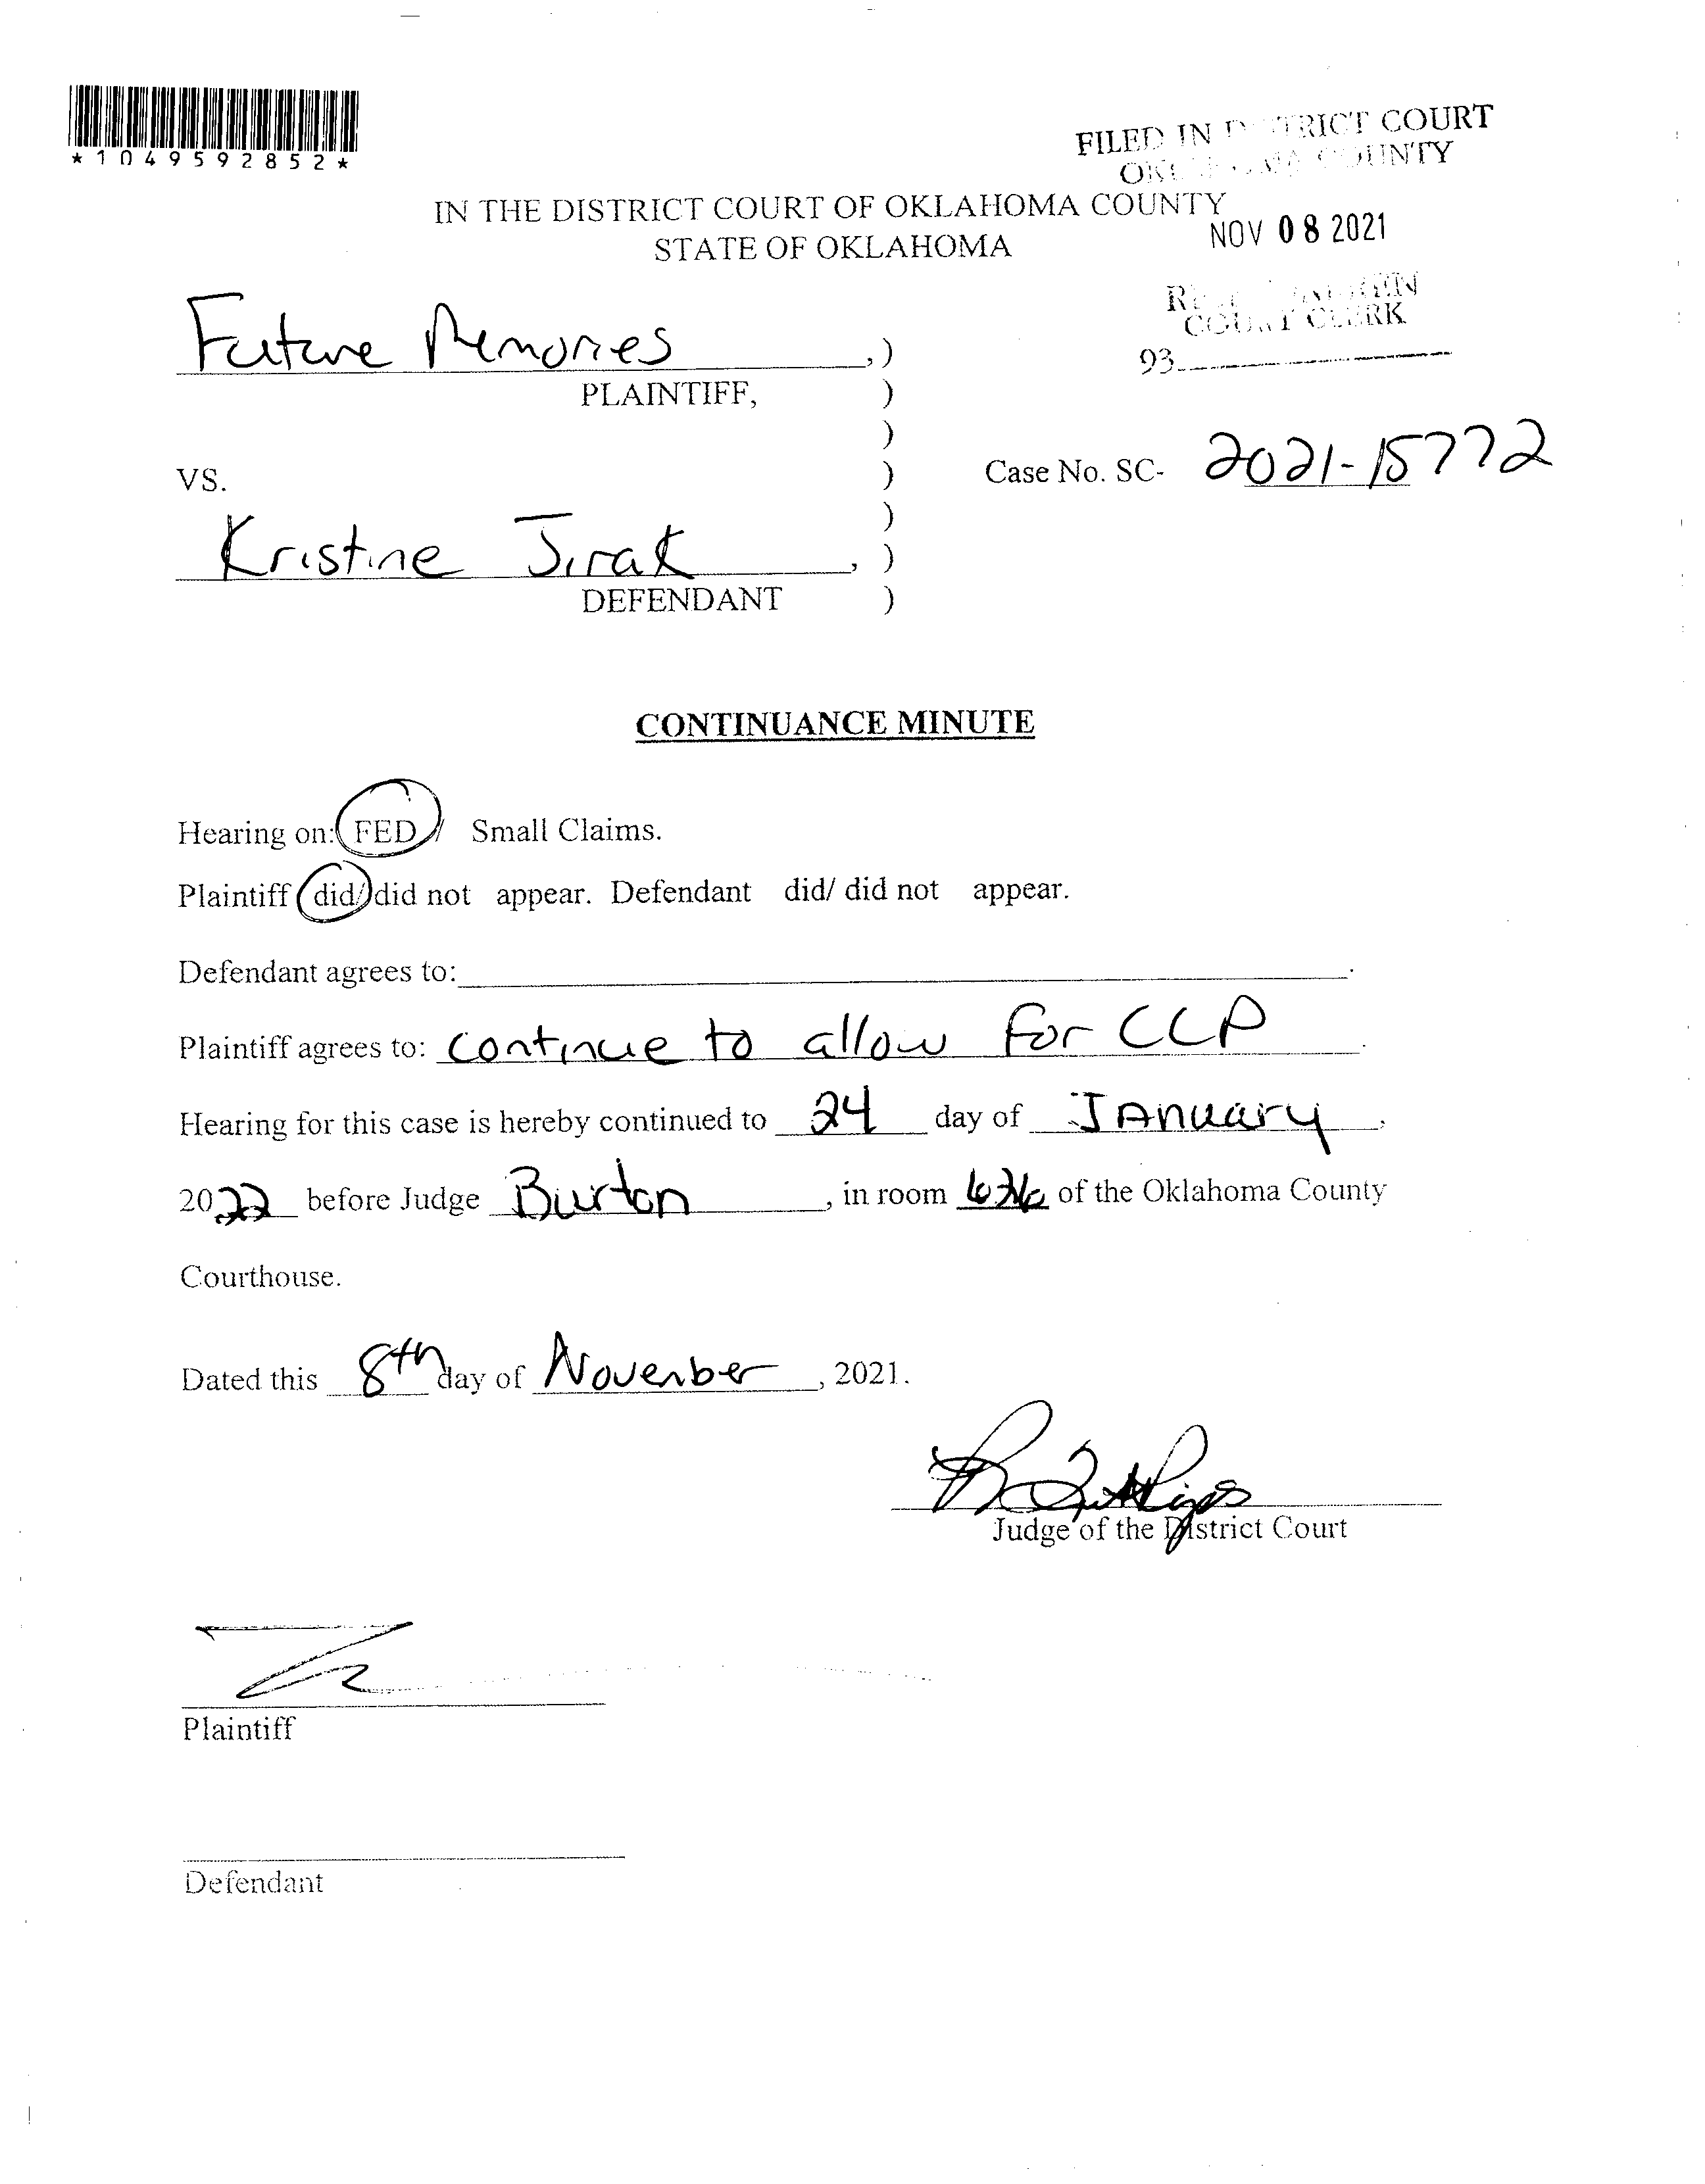 *1049592852*
FILED IN DISTRICT COURT
OKLAHOMA COUNTY
IN THE DISTRICT COURT OF OKLAHOMA COUNTY
STATE OF OKLAHOMA
NOV 08 2021
COURT CLERK
93
Future Memories ,)
PLAINTIFF, )
)
VS. )
Case No. SC- 2021-15772
)
Kristine Jirak , )
DEFENDANT )
CONTINUANCE MINUTE
Hearing on: FED / Small Claims.
Plaintiff did/ did not appear. Defendant did/ did not appear.
Defendant agrees to: .
Plaintiff agrees to: continue to allow for CCP .
Hearing for this case is hereby continued to 24 day of JAnuary ,
2022 before Judge Burton , in room of the Oklahoma County
Courthouse.
Dated this 8th day of November , 2021.
Judge of the District Court
Plaintiff
Defendant